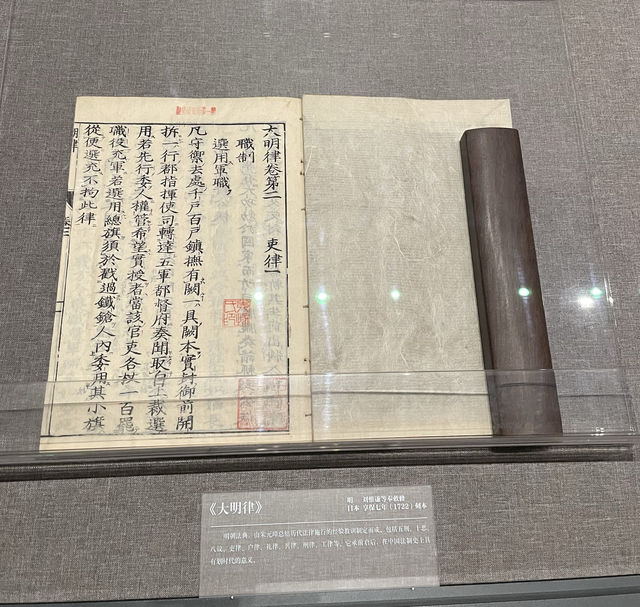 大明律卷第二 吏律一
職制
選用軍職
凡守禦去處千戶百戶鎮撫有闕一具闕本實封御前開
拆一行都指揮使司轉達五軍都督府奏聞取自上裁選
用若先行委人權管希望實授者當該官吏各杖一百罷
職役充軍若選用總旗須於戳過鐵鎗人內委用其小旗
從便選充不拘此律
明律
《大明律》
明 刘惟谦等奉敕修
日本 享保七年（1722）刻本
明朝法典。由朱元璋总结历代法律施行的经验教训制定而成。包括五刑、十恶、
八议、吏律、户律、礼律、兵律、刑律、工律等。它承前启后，在中国法制史上具
有划时代的意义。